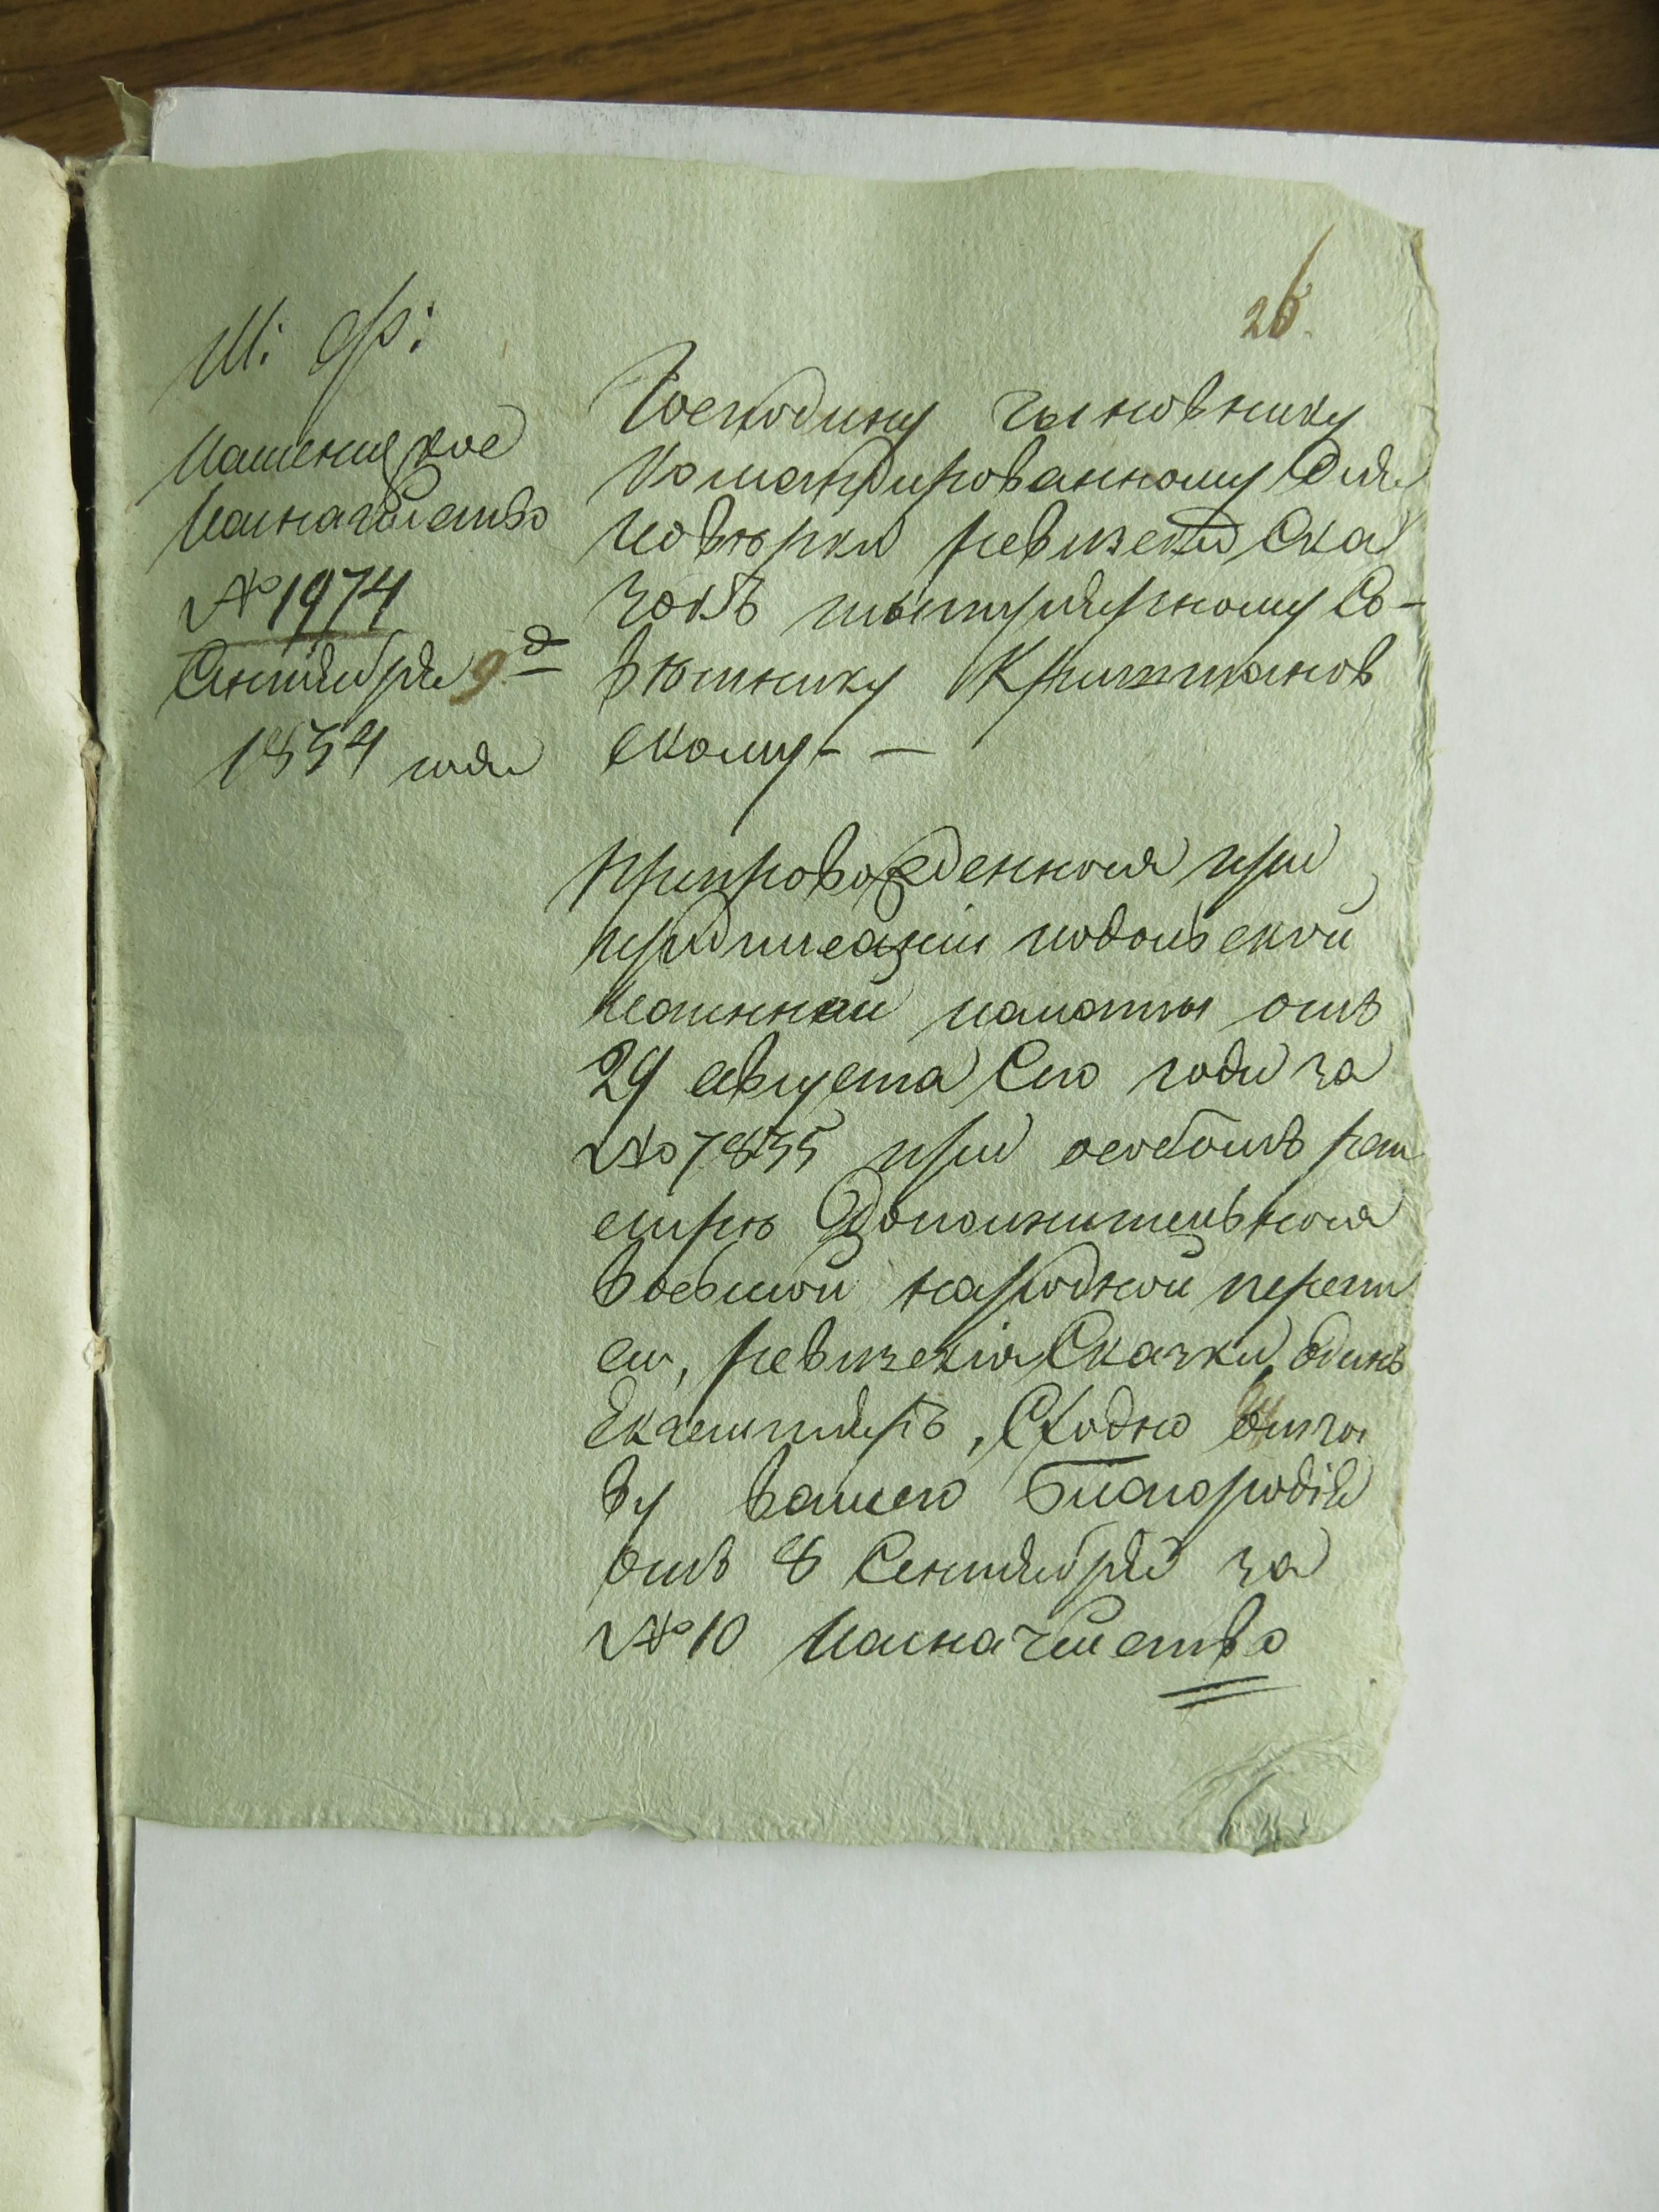 26
М: Ф:
Каменецкое
Казначейство
№ 1974
Сентября 9 д
1834 года
Господину чыновнику
Командированному для
повѣрки ревизски Ска
зокъ титулярному Со-
вѣтнику Крыжанов
скому - —
Припровожденная при
предписаніи подольской
Казинной палаты отъ
29 августа Сего года за
№ 7835 при особомъ реи
стрѣ Дополнительная
восьмой народной перепи
си, ревизския Сказки, одинъ
Екземпляръ, Сходно отзы
ву вашего Благородія
отъ 8 Сентября за
№ 10 Казначейство